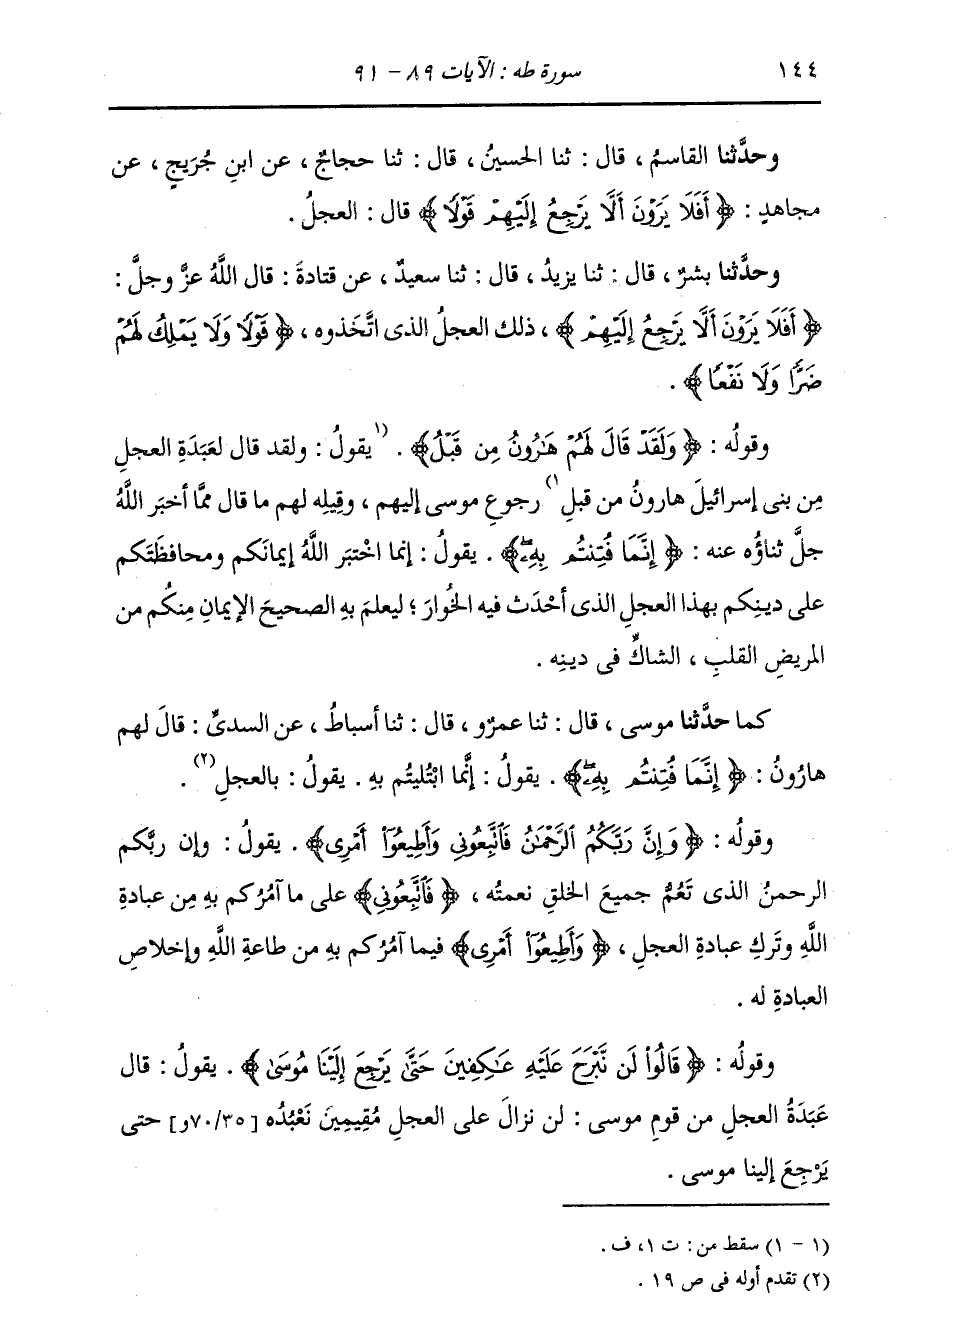 ١٤٤ سورة طه : الآيات ٨٩ - ٩١
وحدَّثنا القاسمُ ، قال : ثنا الحسينُ ، قال : ثنا حجاجٌ ، عن ابنِ جُرَيجٍ ، عن
مجاهدٍ : ﴿ أَفَلَا يَرَوْنَ أَلَّا يَرْجِعُ إِلَيْهِمْ قَوْلًا ﴾ قال : العجلُ .
وحدَّثنا بشرٌ ، قال : ثنا يزيدُ ، قال : ثنا سعيدٌ ، عن قتادةَ : قال اللَّهُ عزَّ وجلَّ :
﴿ أَفَلَا يَرَوْنَ أَلَّا يَرْجِعُ إِلَيْهِمْ ﴾ ، ذلك العجلُ الذى اتَّخذوه ، ﴿ قَوْلًا وَلَا يَمْلِكُ لَهُمْ
ضَرًّا وَلَا نَفْعًا ﴾ .
وقولُه : ﴿ وَلَقَدْ قَالَ لَهُمْ هَٰرُونُ مِن قَبْلُ ﴾ . (١يقولُ : ولقد قال لعَبَدَةِ العجلِ
مِن بنى إسرائيلَ هارونُ من قبلِ١) رجوعِ موسى إليهم ، وقِيلِه لهم ما قال ممَّا أخبَر اللَّهُ
جلَّ ثناؤُه عنه : ﴿ إِنَّمَا فُتِنتُم بِهِۦ ﴾ . يقولُ : إنما اخْتبَر اللَّهُ إيمانَكم ومحافظَتَكم
على دينِكم بهذا العجلِ الذى أحْدَث فيه الخُوارَ ؛ ليعلمَ به الصحيحَ الإيمانِ مِنكُم من
المريضِ القلبِ ، الشاكِّ فى دينِه .
كما حدَّثنا موسى ، قال : ثنا عمرٌو ، قال : ثنا أسباطُ ، عن السدىِّ : قالَ لهم
هارُونُ : ﴿ إِنَّمَا فُتِنتُم بِهِۦ ﴾ . يقولُ : إنَّما ابْتُليتُم بهِ . يقولُ : بالعجلِ(٢) .
وقولُه : ﴿ وَإِنَّ رَبَّكُمُ ٱلرَّحْمَٰنُ فَٱتَّبِعُونِي وَأَطِيعُوٓا۟ أَمْرِى ﴾ . يقولُ : وإن ربَّكم
الرحمنُ الذى تَعُمُّ جميعَ الخلقِ نعمتُه ، ﴿ فَٱتَّبِعُونِي ﴾ على ما آمُرُكم بهِ مِن عبادةِ
اللَّهِ وتَركِ عبادةِ العجلِ ، ﴿ وَأَطِيعُوٓا۟ أَمْرِى ﴾ فيما آمُرُكم بهِ من طاعةِ اللَّهِ وإخلاصِ
العبادةِ له .
وقولُه : ﴿ قَالُوا۟ لَن نَّبْرَحَ عَلَيْهِ عَٰكِفِينَ حَتَّىٰ يَرْجِعَ إِلَيْنَا مُوسَىٰ ﴾ . يقولُ : قال
عَبَدَةُ العجلِ من قومِ موسى : لن نزالَ على العجلِ مُقِيمِينَ نَعْبُدُه [٧٠/٣٥و] حتى
يَرْجِعَ إلينا موسى .
(١ - ١) سقط من : ت ١، ف .
(٢) تقدم أوله فى ص ١٩ .